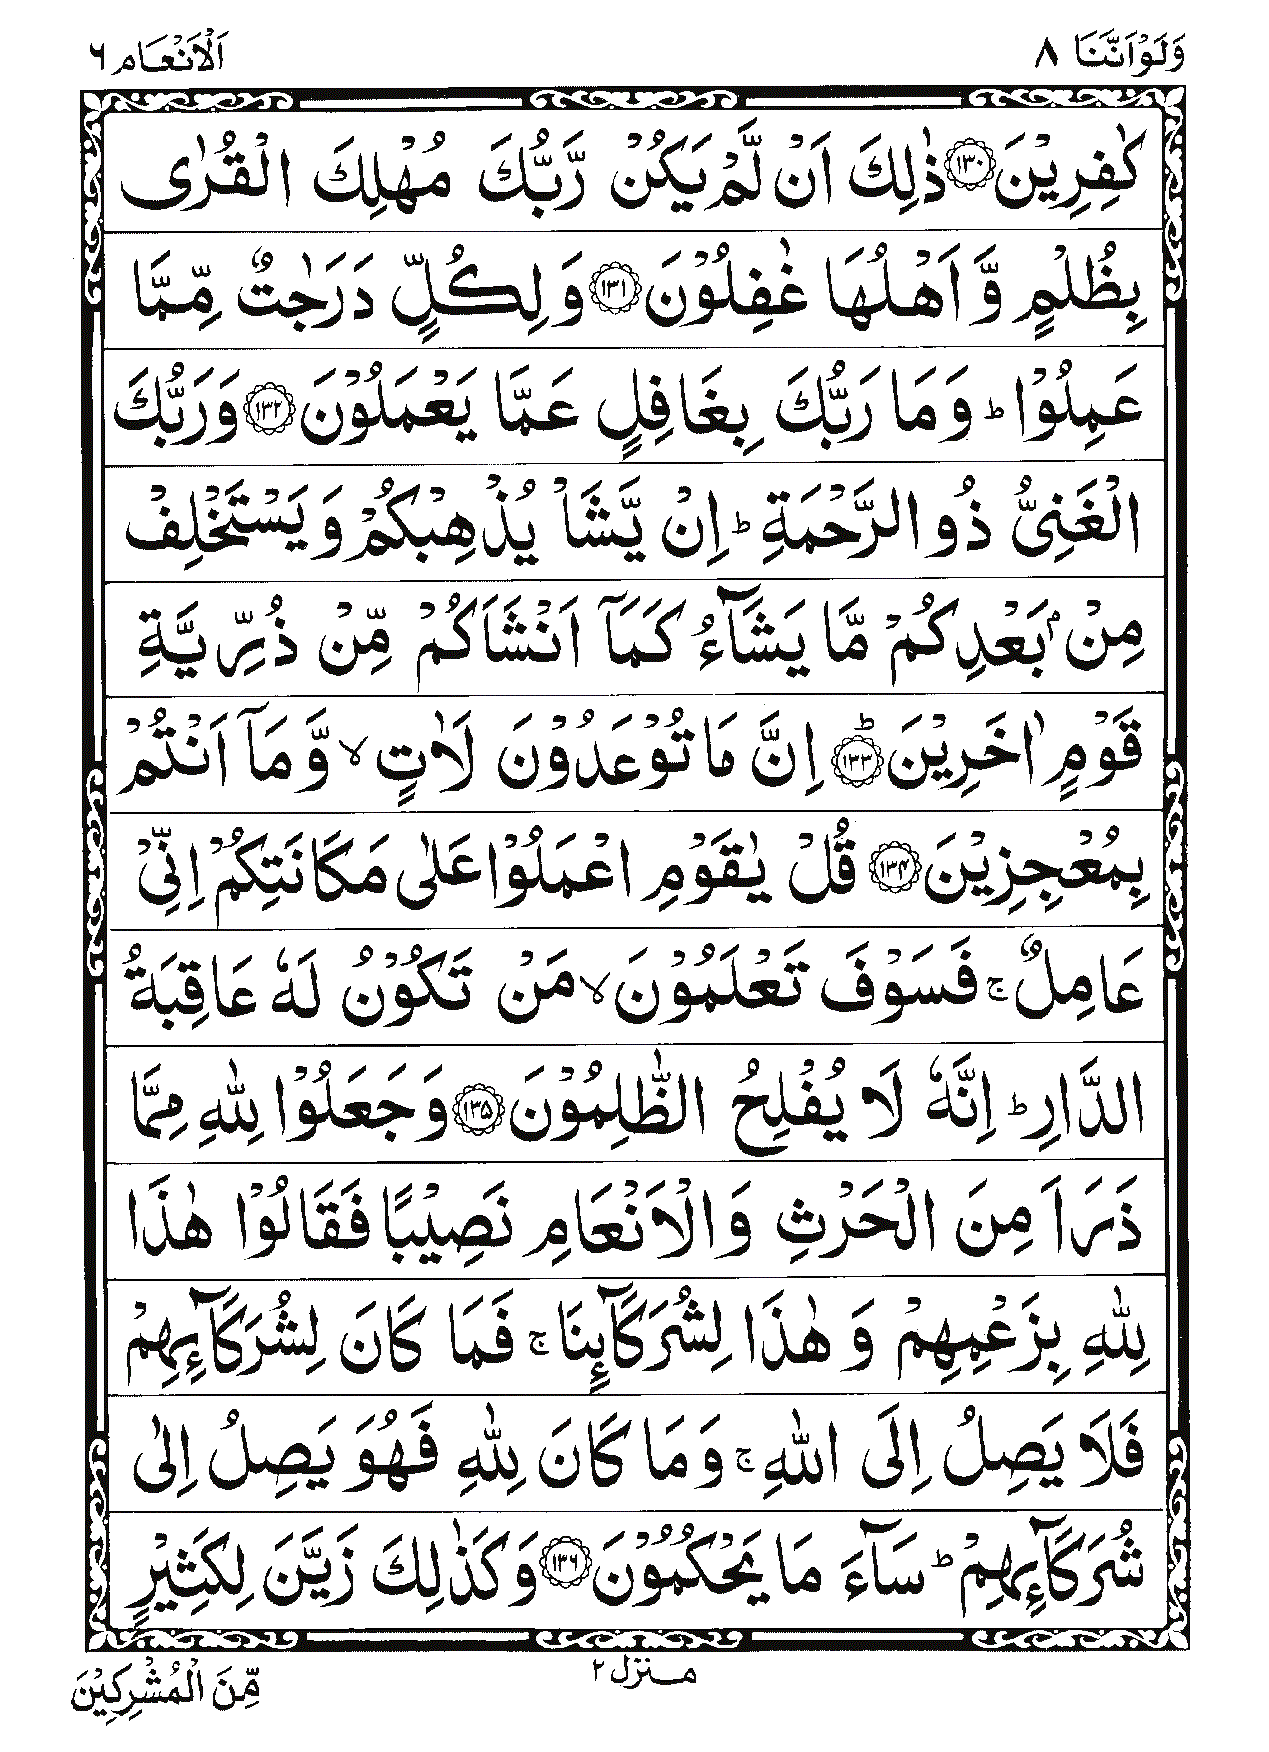 وَلَوْاَنَّنَا ٨ اَلْاَنْعَام ٦
كٰفِرِيْنَ ﴿١٣٠﴾ ذٰلِكَ اَنْ لَّمْ يَكُنْ رَّبُّكَ مُهْلِكَ الْقُرٰى
بِظُلْمٍ وَّاَهْلُهَا غٰفِلُوْنَ ﴿١٣١﴾ وَلِكُلٍّ دَرَجٰتٌ مِّمَّا
عَمِلُوْا ؕ وَمَا رَبُّكَ بِغَافِلٍ عَمَّا يَعْمَلُوْنَ ﴿١٣٢﴾ وَرَبُّكَ
الْغَنِىُّ ذُو الرَّحْمَةِ ؕ اِنْ يَّشَاْ يُذْهِبْكُمْ وَيَسْتَخْلِفْ
مِنْۢ بَعْدِكُمْ مَّا يَشَآءُ كَمَاۤ اَنْشَاَكُمْ مِّنْ ذُرِّيَّةِ
قَوْمٍ اٰخَرِيْنَ ؕ﴿١٣٣﴾ اِنَّ مَا تُوْعَدُوْنَ لَاٰتٍ ۙ وَّمَاۤ اَنْتُمْ
بِمُعْجِزِيْنَ ﴿١٣٤﴾ قُلْ يٰقَوْمِ اعْمَلُوْا عَلٰى مَكَانَتِكُمْ اِنِّىْ
عَامِلٌ ۚ فَسَوْفَ تَعْلَمُوْنَ ۙ مَنْ تَكُوْنُ لَهٗ عَاقِبَةُ
الدَّارِ ؕ اِنَّهٗ لَا يُفْلِحُ الظّٰلِمُوْنَ ﴿١٣٥﴾ وَجَعَلُوْا لِلّٰهِ مِمَّا
ذَرَاَ مِنَ الْحَرْثِ وَالْاَنْعَامِ نَصِيْبًا فَقَالُوْا هٰذَا
لِلّٰهِ بِزَعْمِهِمْ وَ هٰذَا لِشُرَكَآئِنَا ۚ فَمَا كَانَ لِشُرَكَآئِهِمْ
فَلَا يَصِلُ اِلَى اللّٰهِ ۚ وَمَا كَانَ لِلّٰهِ فَهُوَ يَصِلُ اِلٰى
شُرَكَآئِهِمْ ؕ سَآءَ مَا يَحْكُمُوْنَ ﴿١٣٦﴾ وَكَذٰلِكَ زَيَّنَ لِكَثِيْرٍ
منزل ٢
مِّنَ الْمُشْرِكِيْنَ